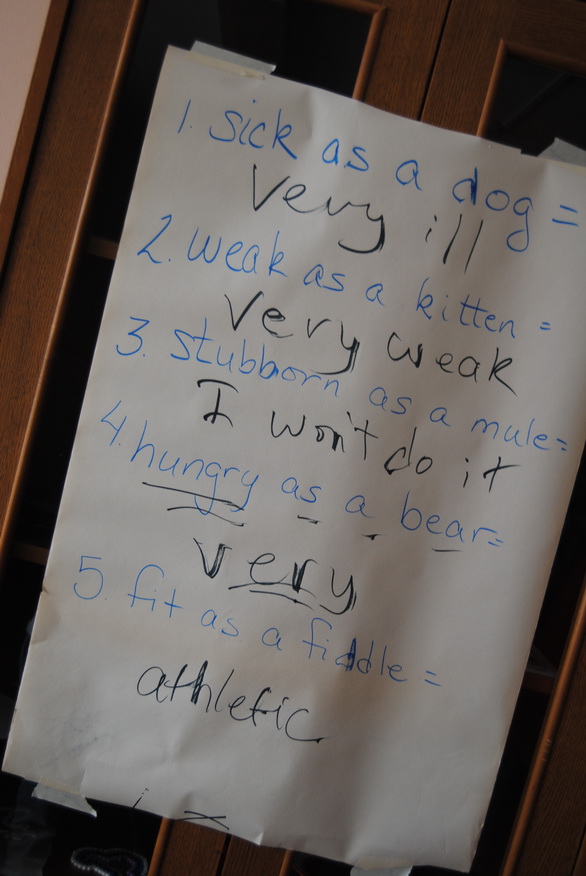 1. Sick as a dog =
Very ill
2. weak as a kitten =
Very weak
3. stubborn as a mule=
I won't do it
4. hungry as a bear=
very
5. fit as a fiddle =
athletic